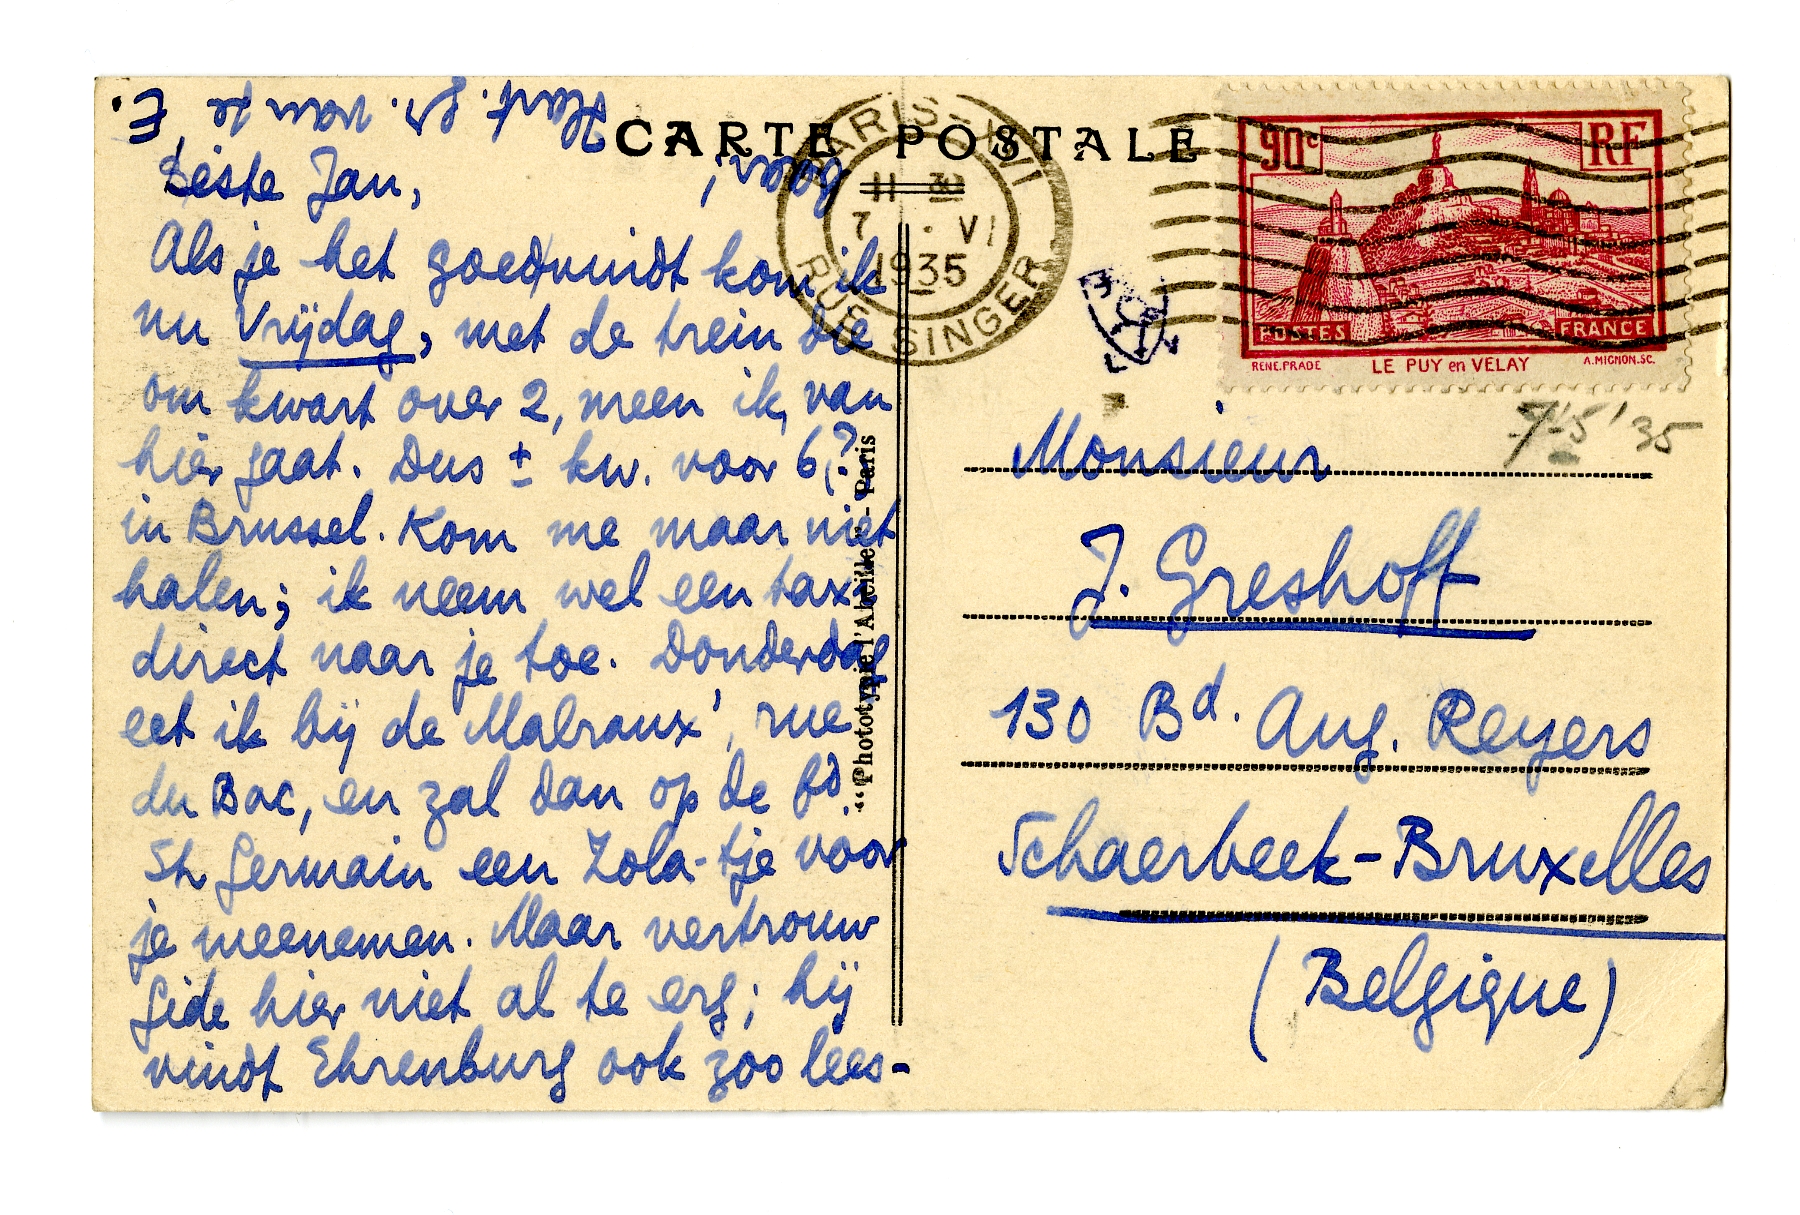 CARTE POSTALE
Beste Jan,
Als je het goedvindt kom ik
nu Vrijdag, met de trein die
om kwart over 2, meen ik, van
hier gaat. Dus ± kw. voor 6,?
in Brussel. Kom me maar niet
halen; ik neem wel een taxi
direct naar je toe. Donderdag
eet ik bij de Malraux', rue
du Bac, en zal dan op de Bd.
St Germain een Zola-tje voor
je meenemen. Maar vertrouw
Gide hier niet al te erg; hij
vindt Ehrenburg ook zoo lees-
baar!
Hart. gr. van je
E.
"Phototypie l'Abeille" - Paris
PARIS-XVI
11 30
7 · VI
1935
RUE SINGER
90c
RF
POSTES
FRANCE
RENE.PRADE
LE PUY en VELAY
A.MIGNON.SC.
7-5'35
Monsieur
J. Greshoff
130 Bd. Aug. Reyers
Schaerbeek-Bruxelles
(Belgique)